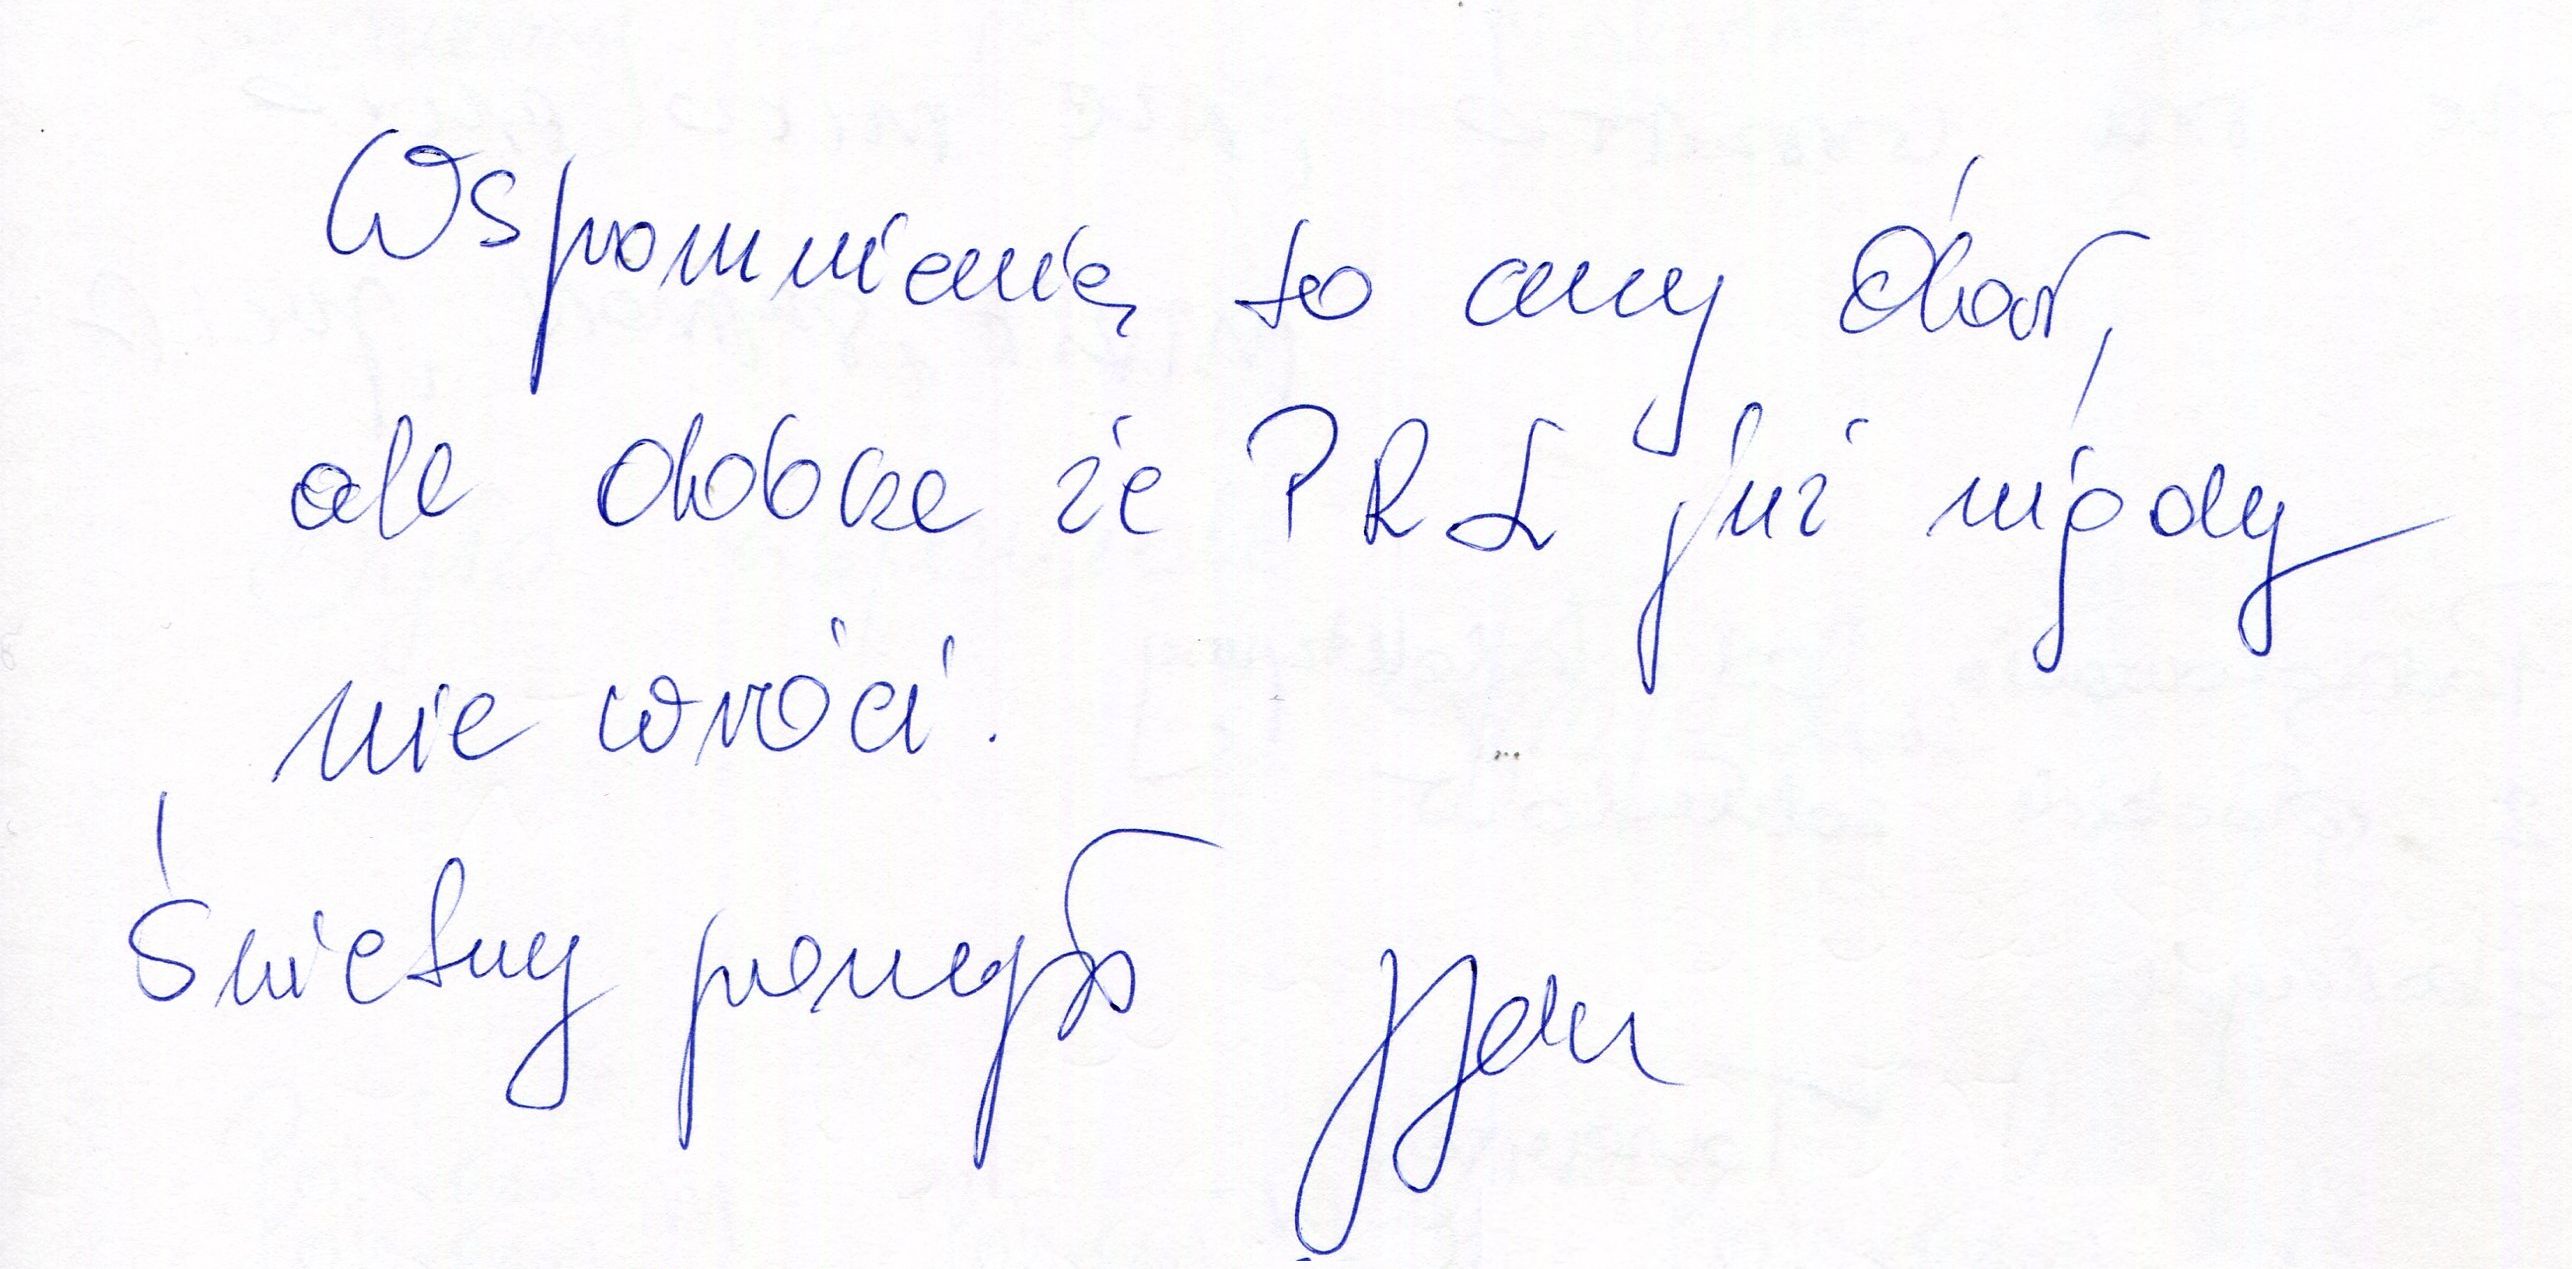 Wspomnienie to cenny dar,
ale dobrze że PRL już nigdy
nie wróci.
Świetny pomysł